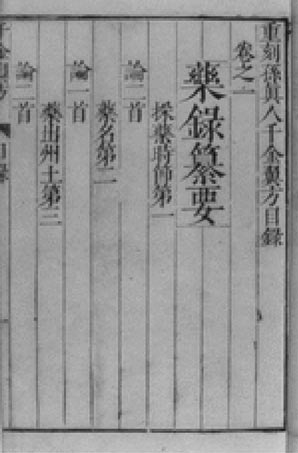 重刻孫真人千金翼方目錄
卷之一
藥錄纂要
採藥時節第一
論一首
藥名第二
論一首
藥出州土第三
論二首
千金翼方 目錄